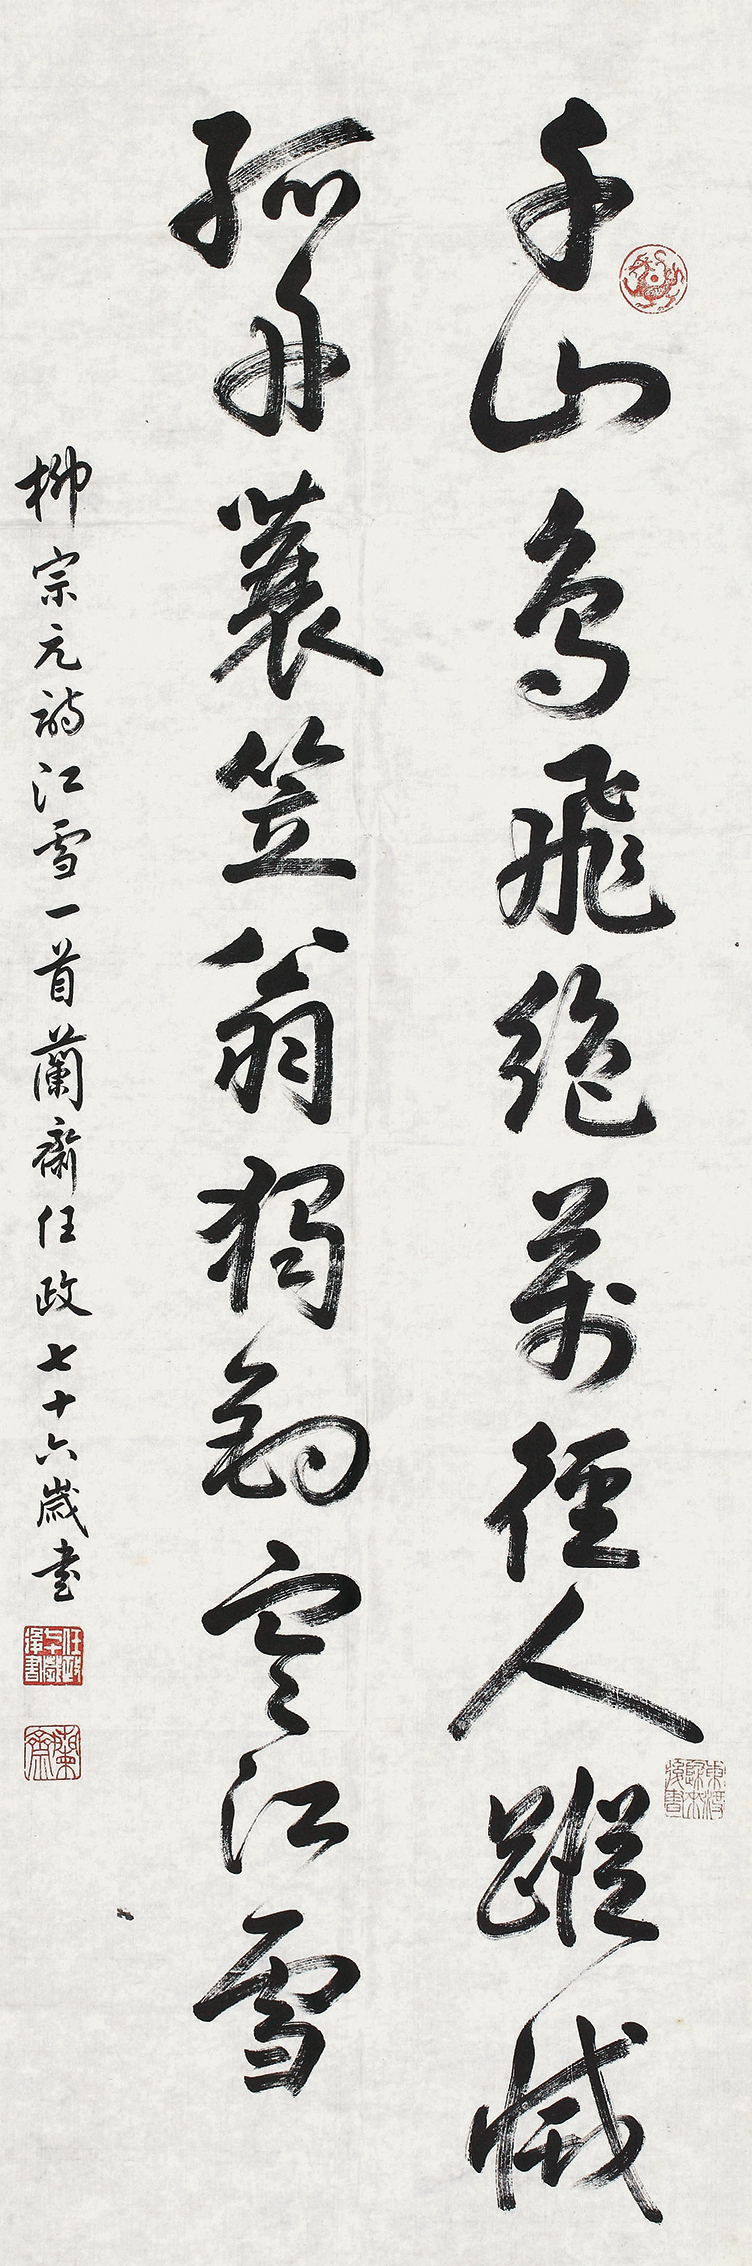 千山鳥飛絶萬徑人蹤滅
孤舟蓑笠翁獨釣寒江雪
柳宗元詩江雪一首蘭齋任政七十六歲書
任政七十歲後書
蘭齋